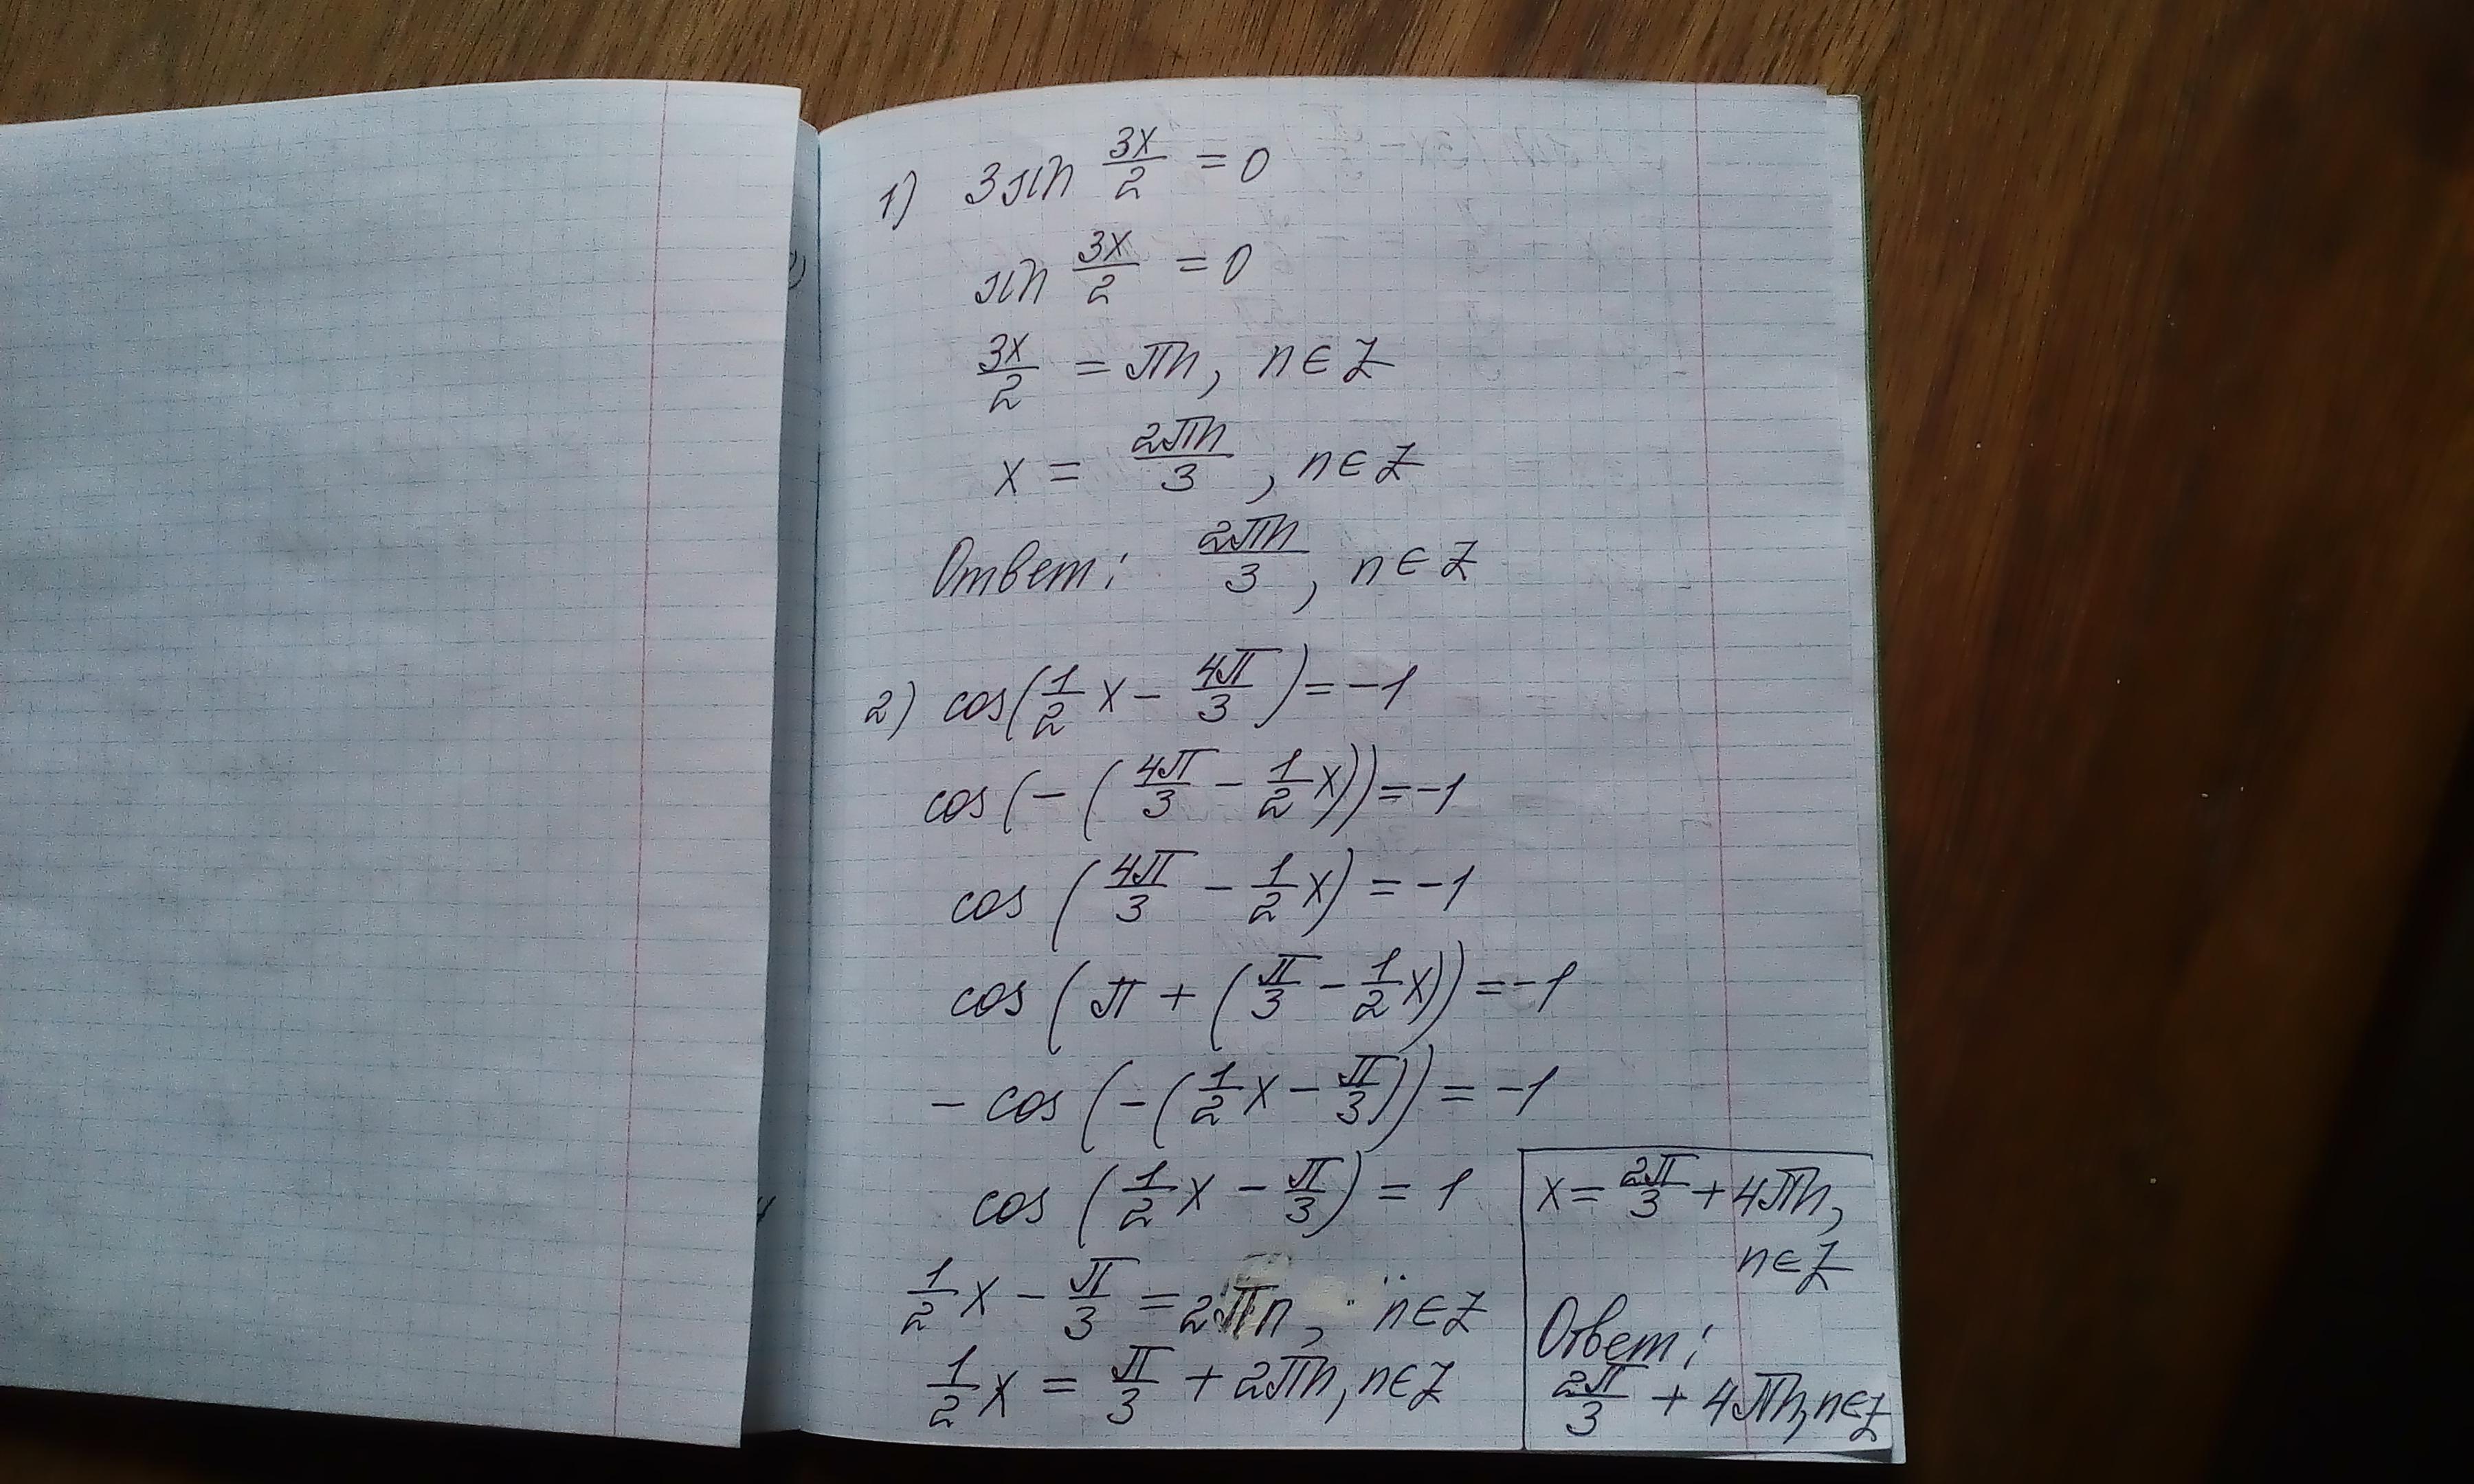 1) 3sin 3x/2 = 0
sin 3x/2 = 0
3x/2 = πn, n∈Z
x = 2πn/3, n∈Z
Ответ: 2πn/3, n∈Z
2) cos(1/2 x - 4π/3) = -1
cos(-(4π/3 - 1/2 x)) = -1
cos(4π/3 - 1/2 x) = -1
cos(π + (π/3 - 1/2 x)) = -1
- cos(-(1/2 x - π/3)) = -1
cos(1/2 x - π/3) = 1
1/2 x - π/3 = 2πn, n∈Z
1/2 x = π/3 + 2πn, n∈Z
x = 2π/3 + 4πn,
n∈Z
Ответ:
2π/3 + 4πn, n∈Z